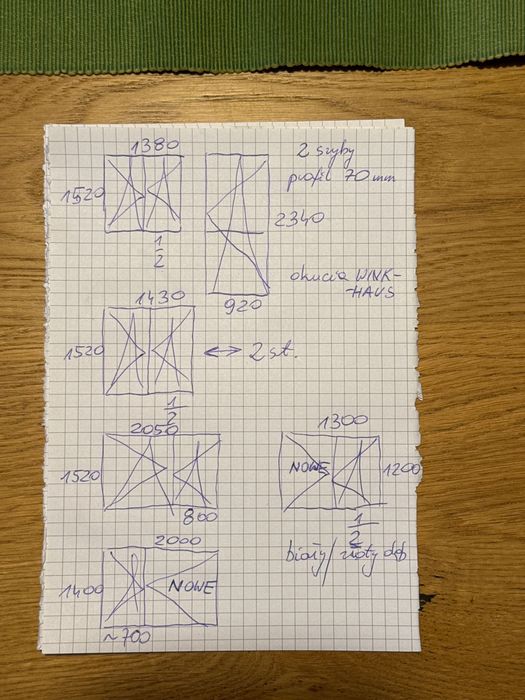 1380
1520
1
2
2 szyby
profil 70 mm
2340
920
okucia WINK-
-HAUS
1430
1520
1
2
2 szt.
2050
1520
800
1300
NOWE
1200
1
2
biały/złoty dąb
2000
1400
NOWE
~700